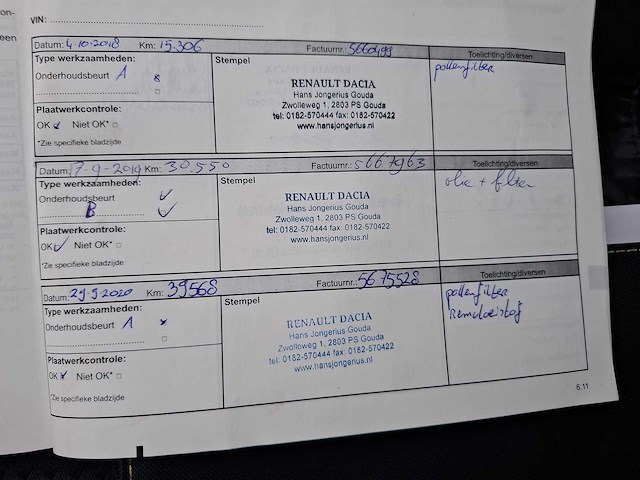 on-
een
VIN:
Datum: 4.10.2018 Km: 15.306 Factuurnr.: 5660499
Type werkzaamheden:
Onderhoudsbeurt A x
Plaatwerkcontrole:
OK ✓ Niet OK* □
*Zie specifieke bladzijde
Stempel
RENAULT DACIA
Hans Jongerius Gouda
Zwolleweg 1, 2803 PS Gouda
tel: 0182-570444 fax: 0182-570422
www.hansjongerius.nl
Toelichting/diversen
pollenfilter
Datum: 17-9-2019 Km: 30.550 Factuurnr.: 5667963
Type werkzaamheden:
Onderhoudsbeurt ✓
B ✓
Plaatwerkcontrole:
OK ✓ Niet OK* □
*Zie specifieke bladzijde
Stempel
RENAULT DACIA
Hans Jongerius Gouda
Zwolleweg 1, 2803 PS Gouda
tel: 0182-570444 fax: 0182-570422
www.hansjongerius.nl
Toelichting/diversen
olie + filter
Datum: 29-9-2020 Km: 39568 Factuurnr.: 5675528
Type werkzaamheden:
Onderhoudsbeurt A x
Plaatwerkcontrole:
OK ✓ Niet OK* □
*Zie specifieke bladzijde
Stempel
RENAULT DACIA
Hans Jongerius Gouda
Zwolleweg 1, 2803 PS Gouda
tel: 0182-570444 fax: 0182-570422
www.hansjongerius.nl
Toelichting/diversen
pollenfilter
Remvloeistof
6.11